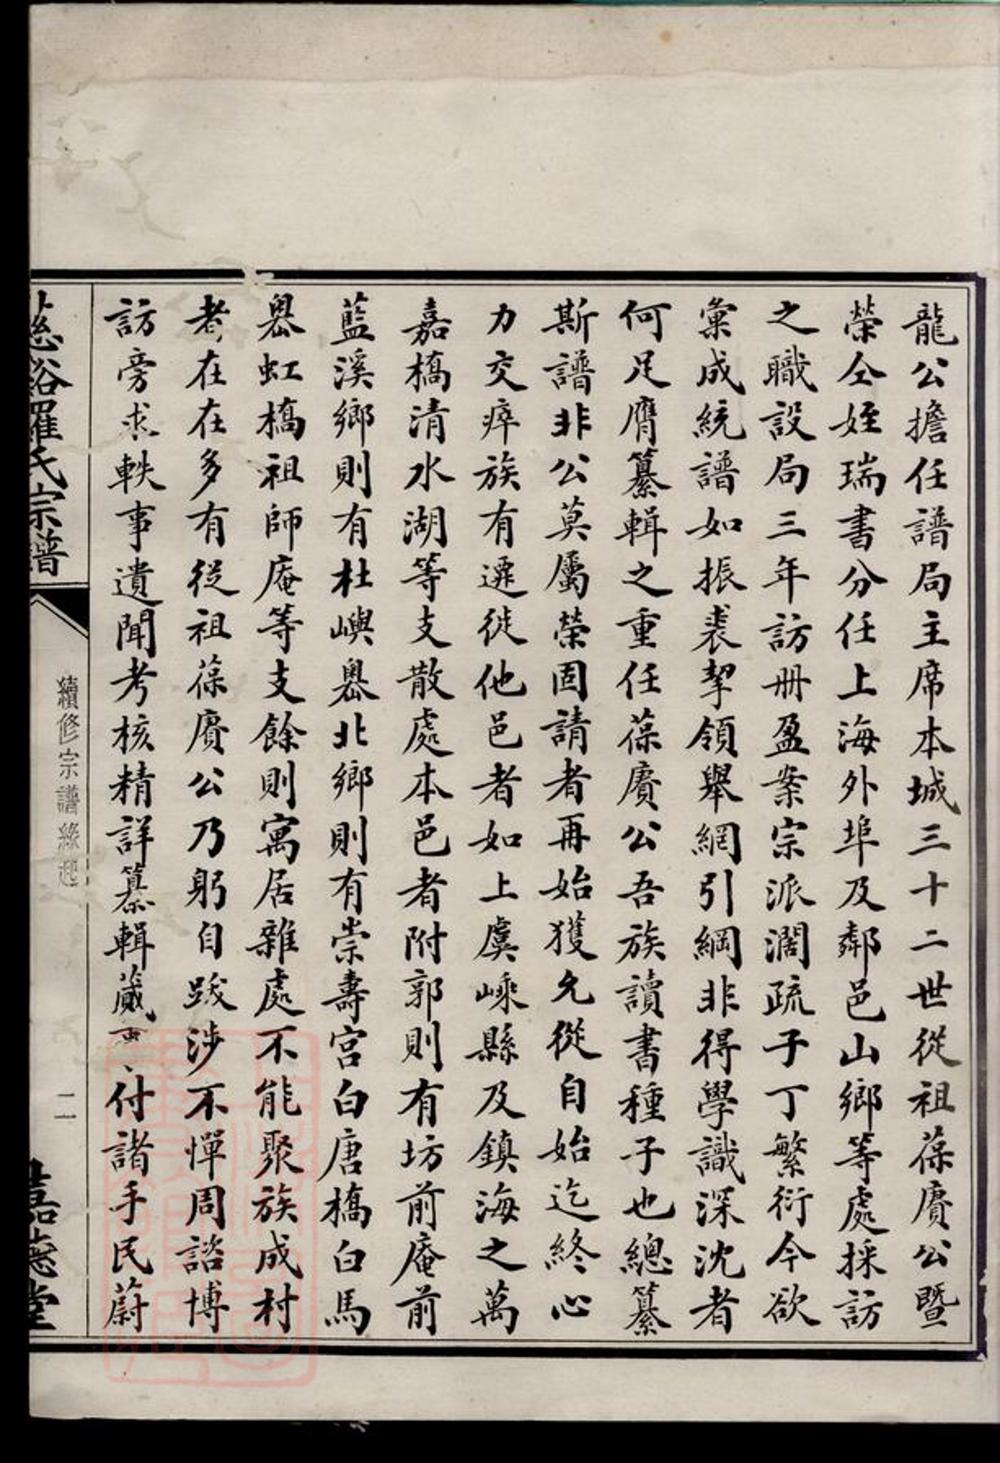 龍公擔任譜局主席本城三十二世從祖葆賡公暨
榮仝姪瑞書分任上海外埠及鄰邑山鄉等處採訪
之職設局三年訪册盈案宗派濶疏子丁繁衍今欲
彙成統譜如振裘挈領舉網引綱非得學識深沈者
何足膺纂輯之重任葆賡公吾族讀書種子也總纂
斯譜非公莫屬榮固請者再始獲允從自始迄終心
力交瘁族有遷徙他邑者如上虞嵊縣及鎮海之萬
嘉橋清水湖等支散處本邑者附郭則有坊前庵前
藍溪鄉則有杜嶼嶴北鄉則有崇壽宮白唐橋白馬
嶴虹橋祖師庵等支餘則寓居雜處不能聚族成村
者在在多有從祖葆賡公乃躬自跋涉不憚周諮博
訪旁求軼事遺聞考核精詳纂輯蕆付諸手民蔚
慈谿羅氏宗譜
續修宗譜緣起
二
嘉德堂